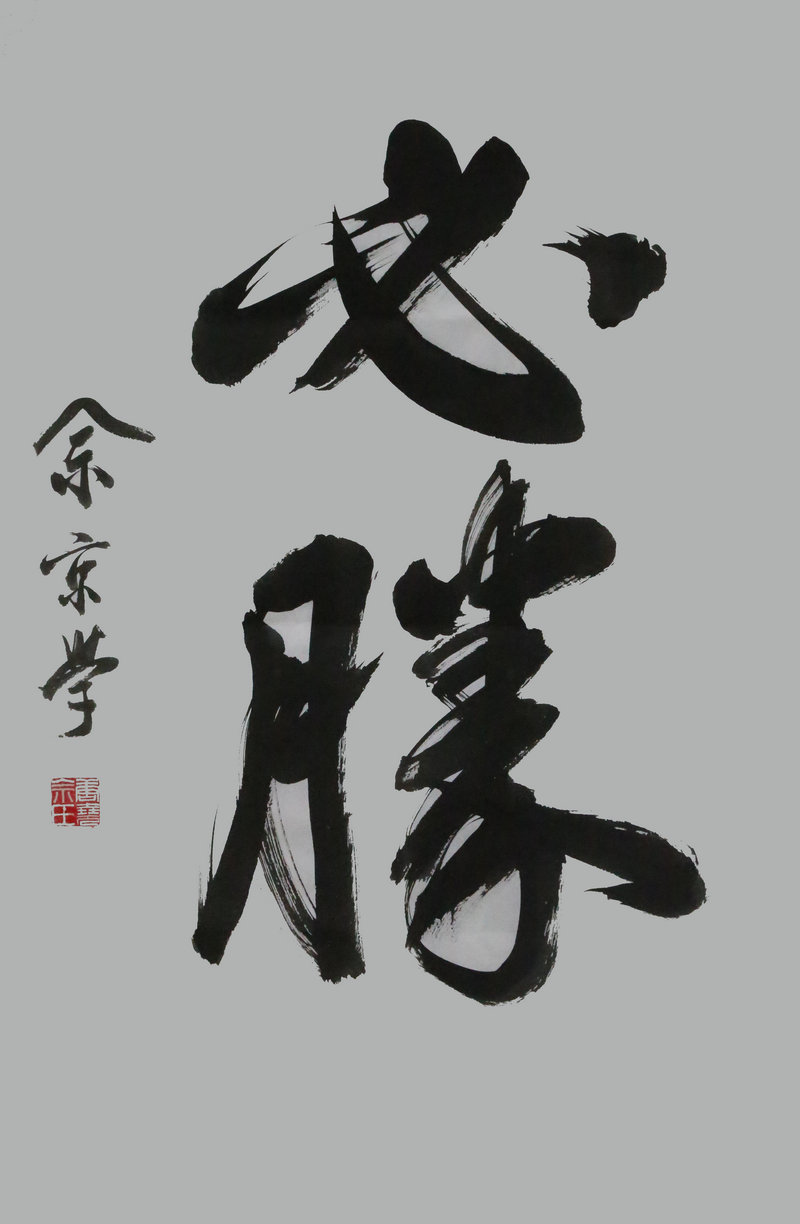 必勝
余京学